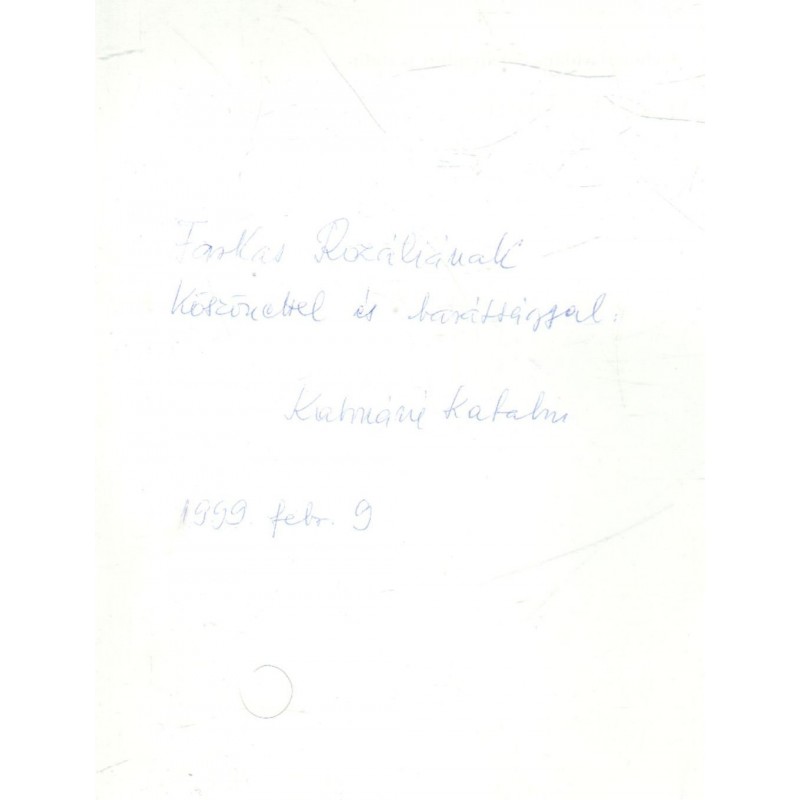 Farkas Rozáliának
Köszönettel és barátsággal:
Katalin
1999. febr. 9